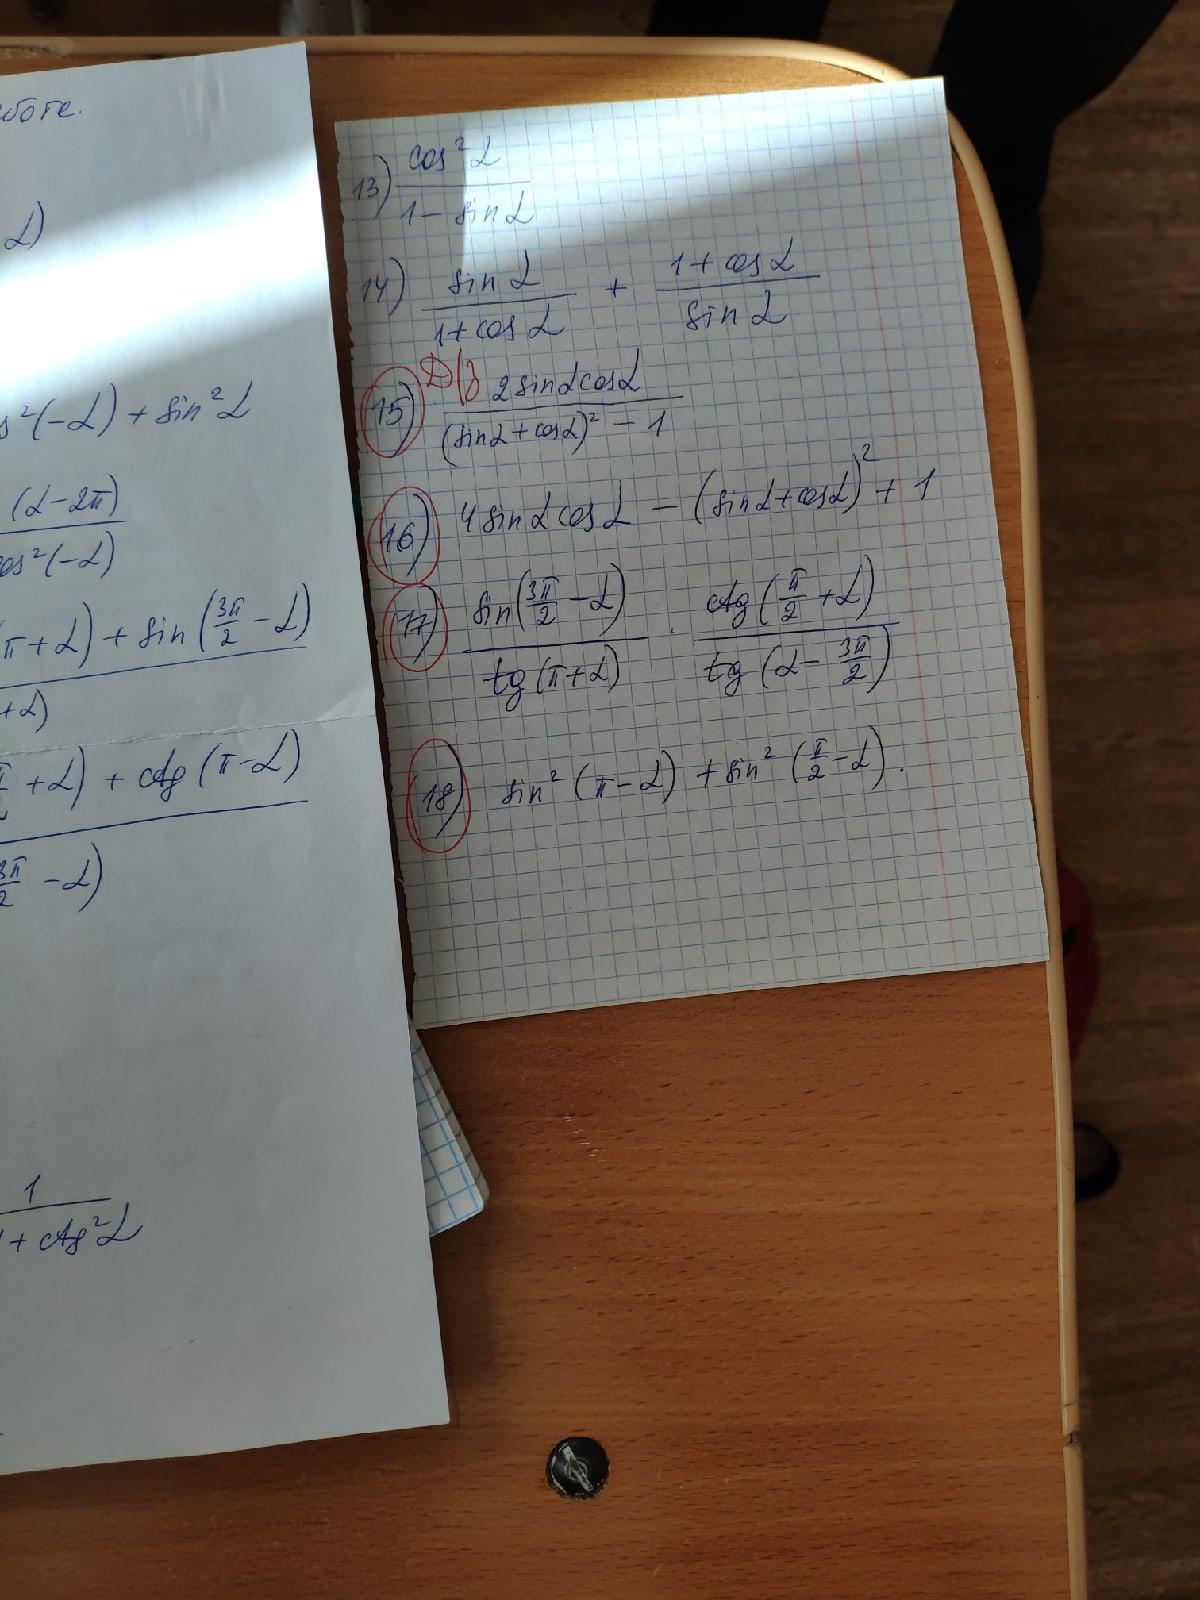 боте.
α)
s²(-α) + sin²α
(α-2π)
os²(-α)
π+α) + sin(3π/2 - α)
+α)
+α) + ctg(π-α)
3π/2 - α)
1
+ ctg²α
13) cos²α
1 - sinα
14) sinα / 1+cosα + 1+cosα / sinα
15) Д/з 2sinαcosα
(sinα+cosα)² - 1
16) 4sinαcosα - (sinα+cosα)² + 1
17) sin(3π/2 - α) / tg(π+α) · ctg(π/2 + α) / tg(α - 3π/2)
18) sin²(π-α) + sin²(π/2 - α).